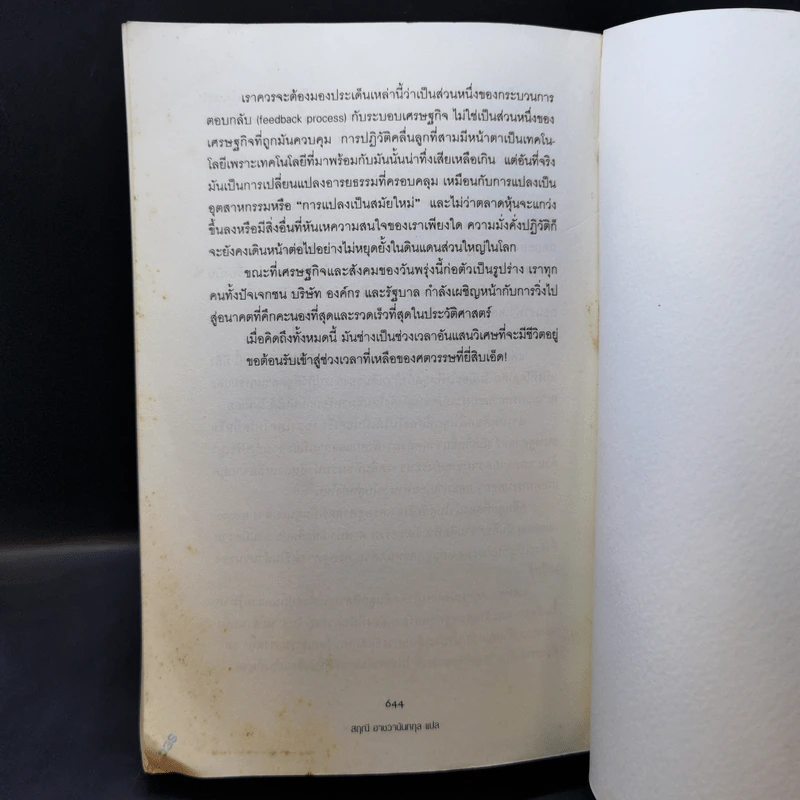 เราควรจะต้องมองประเด็นเหล่านี้ว่าเป็นส่วนหนึ่งของกระบวนการ
ตอบกลับ (feedback process) กับระบอบเศรษฐกิจ ไม่ใช่เป็นส่วนหนึ่งของ
เศรษฐกิจที่ถูกมันควบคุม การปฏิวัติคลื่นลูกที่สามมีหน้าตาเป็นเทคโน-
โลยีเพราะเทคโนโลยีที่มาพร้อมกับมันนั้นน่าทึ่งเสียเหลือเกิน แต่อันที่จริง
มันเป็นการเปลี่ยนแปลงอารยธรรมที่ครอบคลุม เหมือนกับการแปลงเป็น
อุตสาหกรรมหรือ “การแปลงเป็นสมัยใหม่” และไม่ว่าตลาดหุ้นจะแกว่ง
ขึ้นลงหรือมีสิ่งอื่นที่หันเหความสนใจของเราเพียงใด ความมั่งคั่งปฏิวัติก็
จะยังคงเดินหน้าต่อไปอย่างไม่หยุดยั้งในดินแดนส่วนใหญ่ในโลก
ขณะที่เศรษฐกิจและสังคมของวันพรุ่งนี้ก่อตัวเป็นรูปร่าง เราทุก
คนทั้งปัจเจกชน บริษัท องค์กร และรัฐบาล กำลังเผชิญหน้ากับการวิ่งไป
สู่อนาคตที่คึกคะนองที่สุดและรวดเร็วที่สุดในประวัติศาสตร์
เมื่อคิดถึงทั้งหมดนี้ มันช่างเป็นช่วงเวลาอันแสนวิเศษที่จะมีชีวิตอยู่
ขอต้อนรับเข้าสู่ช่วงเวลาที่เหลือของศตวรรษที่ยี่สิบเอ็ด!
644
สฤณี อาชวานันทกุล แปล